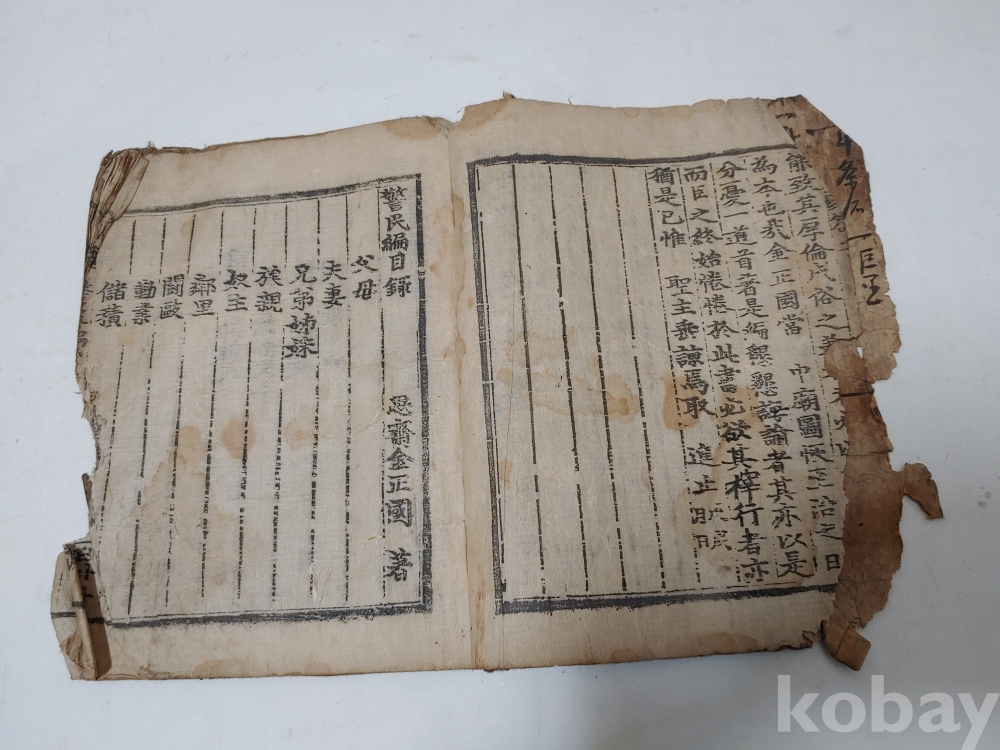 能致其厚倫成俗之美
為本也哉金正國當 中廟圖恢至治之日
分憂一道首著是編懇懇諄諭者其亦以是
而臣之終始惓惓於此書必欲其梓行者亦
猶是已惟 聖主垂諫焉取 進止
警民編目錄
思齋金正國 著
父母
夫妻
兄弟姊妹
族親
奴主
鄰里
鬪毆
勤業
儲積
kobay